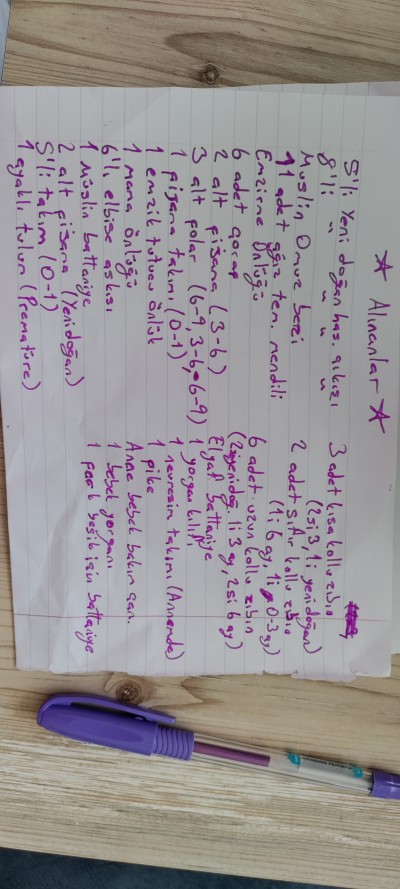 ★ Alınanlar ★
5'li Yeni doğan has. çıkışı
8'li " " " "
Muslin Omuz bezi
11 adet ağız tem. mendili
Emzirme önlüğü
6 adet çorap
2 alt pijama (3-6)
3 alt polar (6-9, 3-6, 6-9)
1 pijama takımı (0-1)
1 emzik tutucu önlük
1 mama önlüğü
6'lı elbise askısı
1 müslin battaniye
2 alt pijama (Yenidoğan)
5'li takım (0-1)
1 ayaklı tulum (Premature)
3 adet kısa kollu zıbın
(2si 3, 1i yenidoğan)
2 adet sıfır kollu zıbın
(1i 6 ay, 1i 0-3 ay)
6 adet uzun kollu zıbın
(2 yenidoğ. 1i 3 ay, 2si 6 ay)
Elyaf battaniye
1 yorgan kılıfı
1 nevresim takımı (Annemde)
1 pike
Anne bebek bakım çan.
1 bebek yorganı
1 park beşik için battaniye